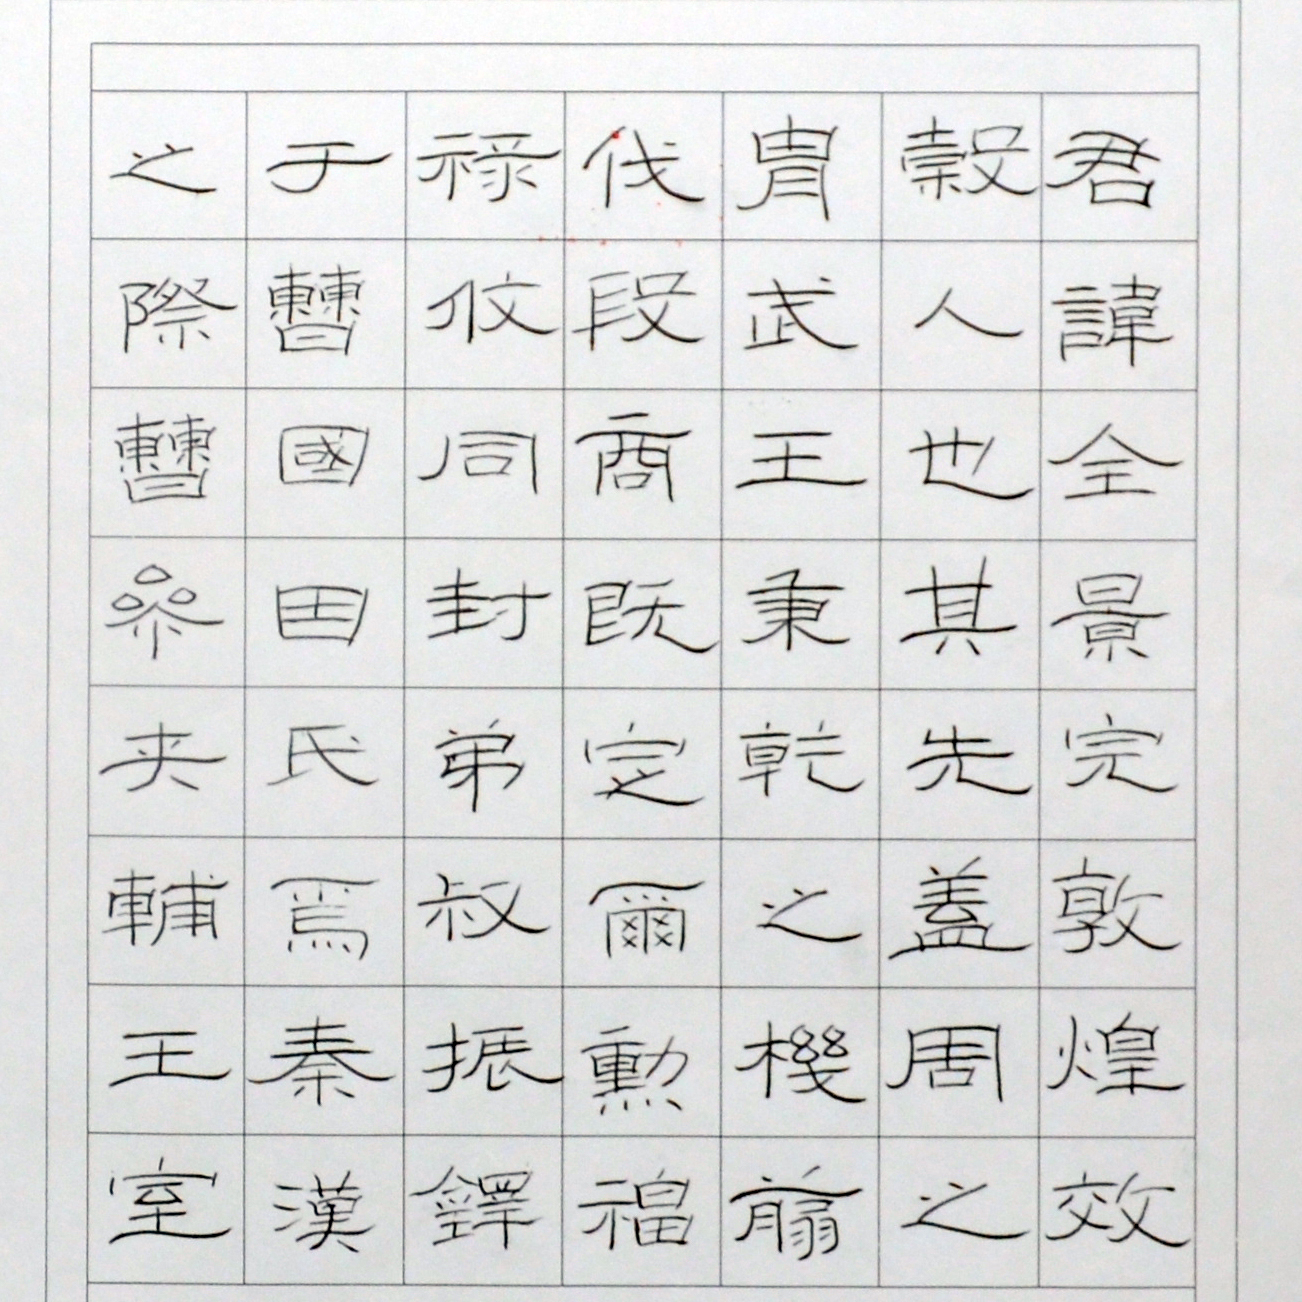 君諱全景完敦煌效
穀人也其先蓋周之
胄武王秉乾之機翦
伐段商既定爾勳福
禄攸同封弟叔振鐸
于曹國因氏焉秦漢
之際曹參夹輔王室